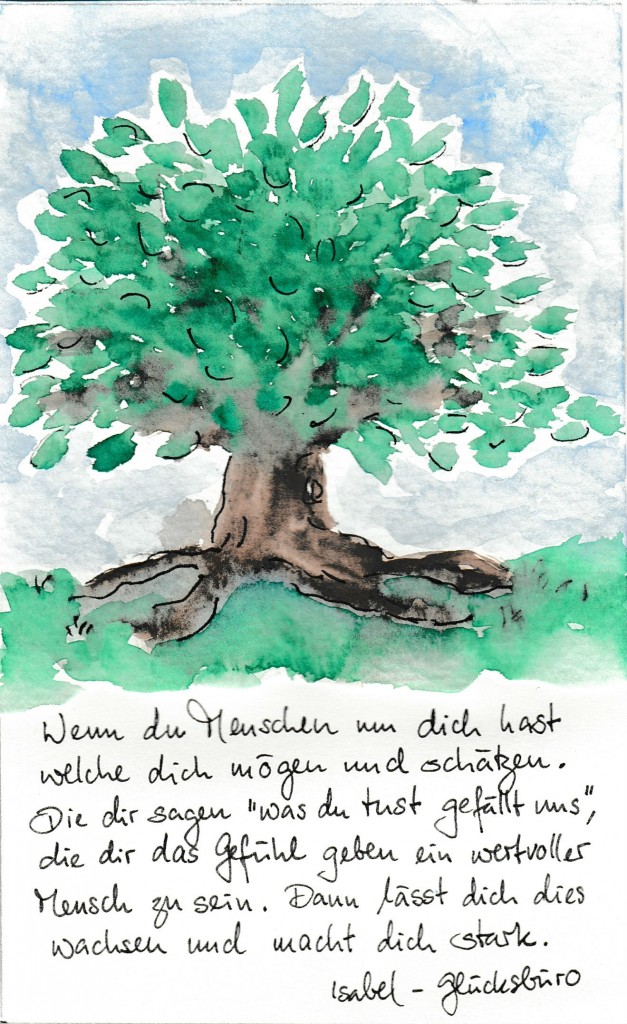 Wenn du Menschen um dich hast
welche dich mögen und schätzen.
Die dir sagen "was du tust gefällt uns",
die dir das Gefühl geben ein wertvoller
Mensch zu sein. Dann lässt dich dies
wachsen und macht dich stark.
Isabel - Glücksbüro